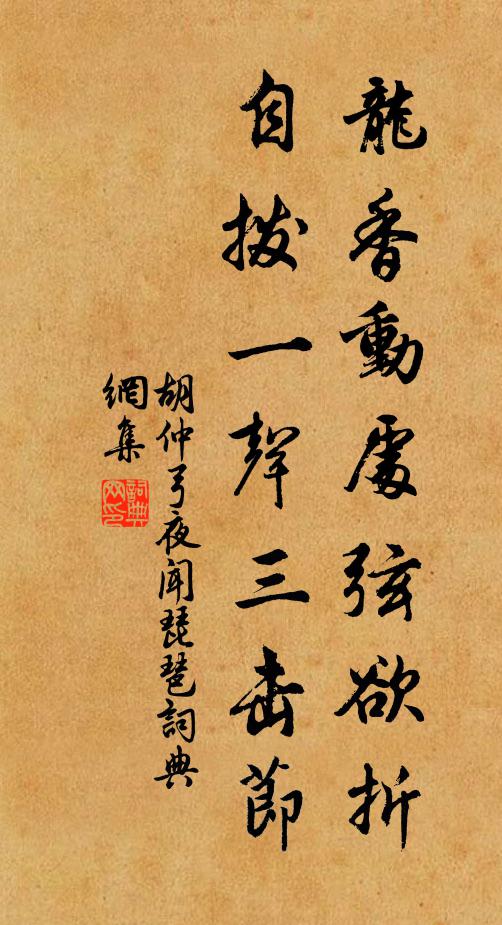 龍香動處弦欲折
自撥一聲三击節
胡仲弓夜聞琵琶詞典
網集
詞典
网印